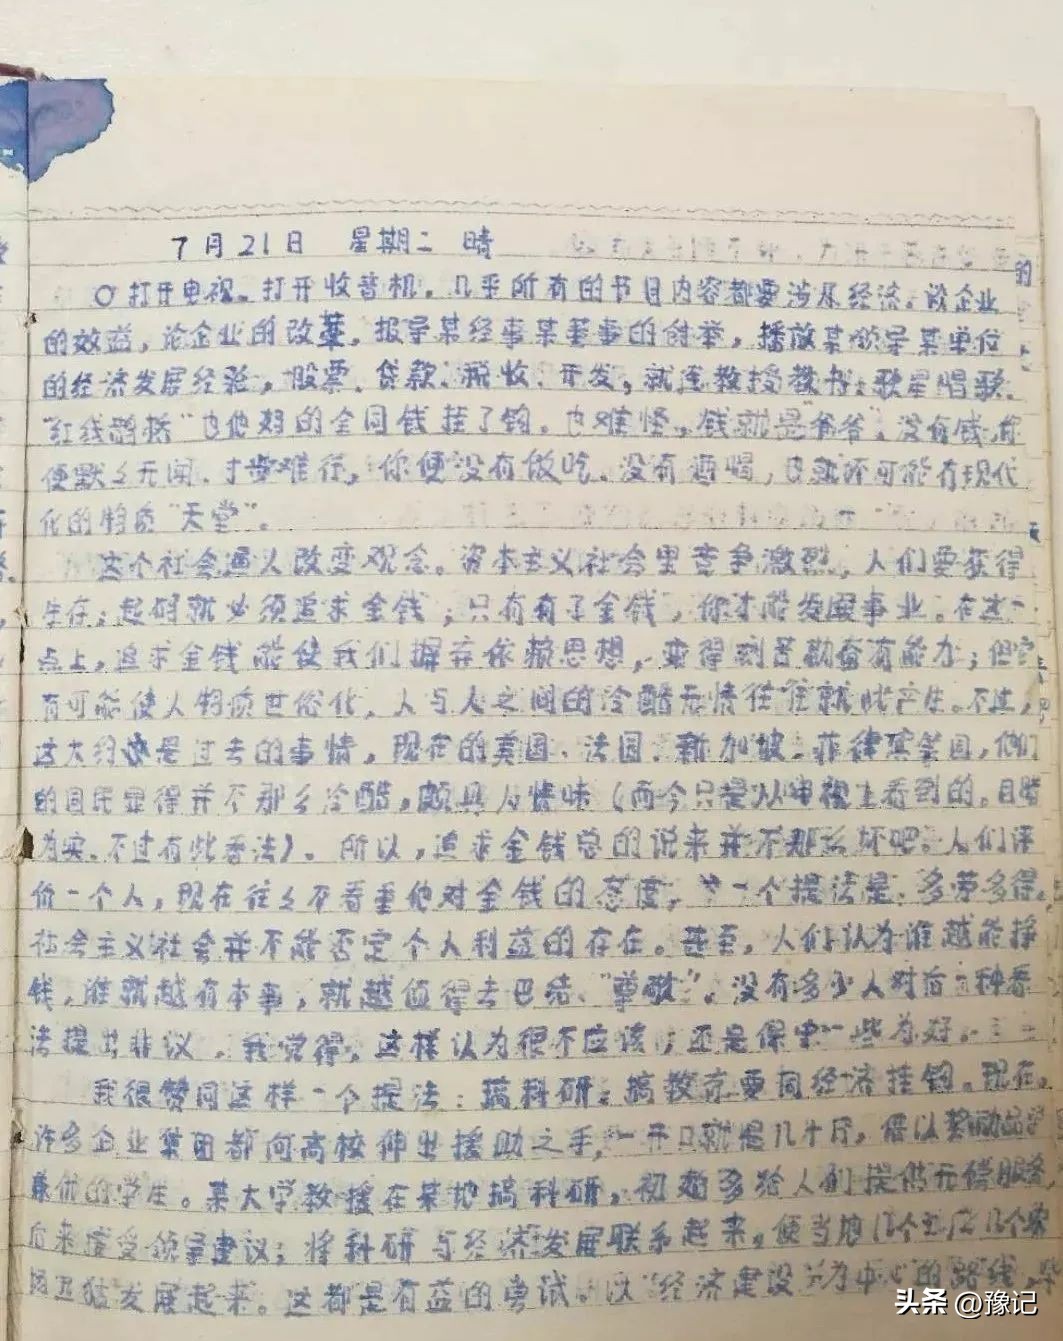 7月21日 星期二 晴
打开电视。打开收音机。几乎所有的节目内容都要涉及经济。谈企业
的效益，论企业的改革，报导某经事某董事的创举，播放某领导某单位
的经济发展经验，股票、贷款、税收、开发，就连教授教书、歌星唱歌、
"红线鹊桥"也他妈的全同钱挂了钩。也难怪，钱就是"爷爷"，没有钱，你
便默々无闻、寸步难行，你便没有做吃、没有酒喝，也就不可能有现代
化的物质"天堂"。
这个社会逼人改变观念。资本主义社会里竞争激烈，人们要获得
生存；起码就必须追求金钱；只有有了金钱，你才能发展事业。在这一
点上，追求金钱能使我们摒弃依赖思想，变得刻苦勤奋有能力；但它
有可能使人物质世俗化，人与人之间的冷酷无情往往就此产生。不过，
这大约是过去的事情，现在的美国、法国、新加坡、菲律宾等国，他们
的国民显得并不那么冷酷，颇具人情味（而今只是从电视上看到的。目睹
为实。不过有些看法）。所以，追求金钱总的说来并不那么坏吧。人们评
价一个人，现在往々不看重他对金钱的态度，一个提法是，多劳多得。
社会主义社会并不能否定个人利益的存在。甚至，人们认为谁越能挣
钱，谁就越有本事，就越值得去巴结、"尊敬"。没有多少人对前一种看
法提出非议。我觉得，这样认为很不应该；还是保守一些为好。
我很赞同这样一个提法：搞科研、搞教育要同经济挂钩。现在，
许多企业集团都向高校伸出援助之手，一开口就是几十万，借以奖励品学
兼优的学生。某大学教授在某地搞科研，初始多给人们提供无偿服务，
后来接受领导建议，将科研与经济发展联系起来，使当地几个
发展起来。这都是有益的尝试。以"经济建设"为中心的路线，
的
头条 @豫记